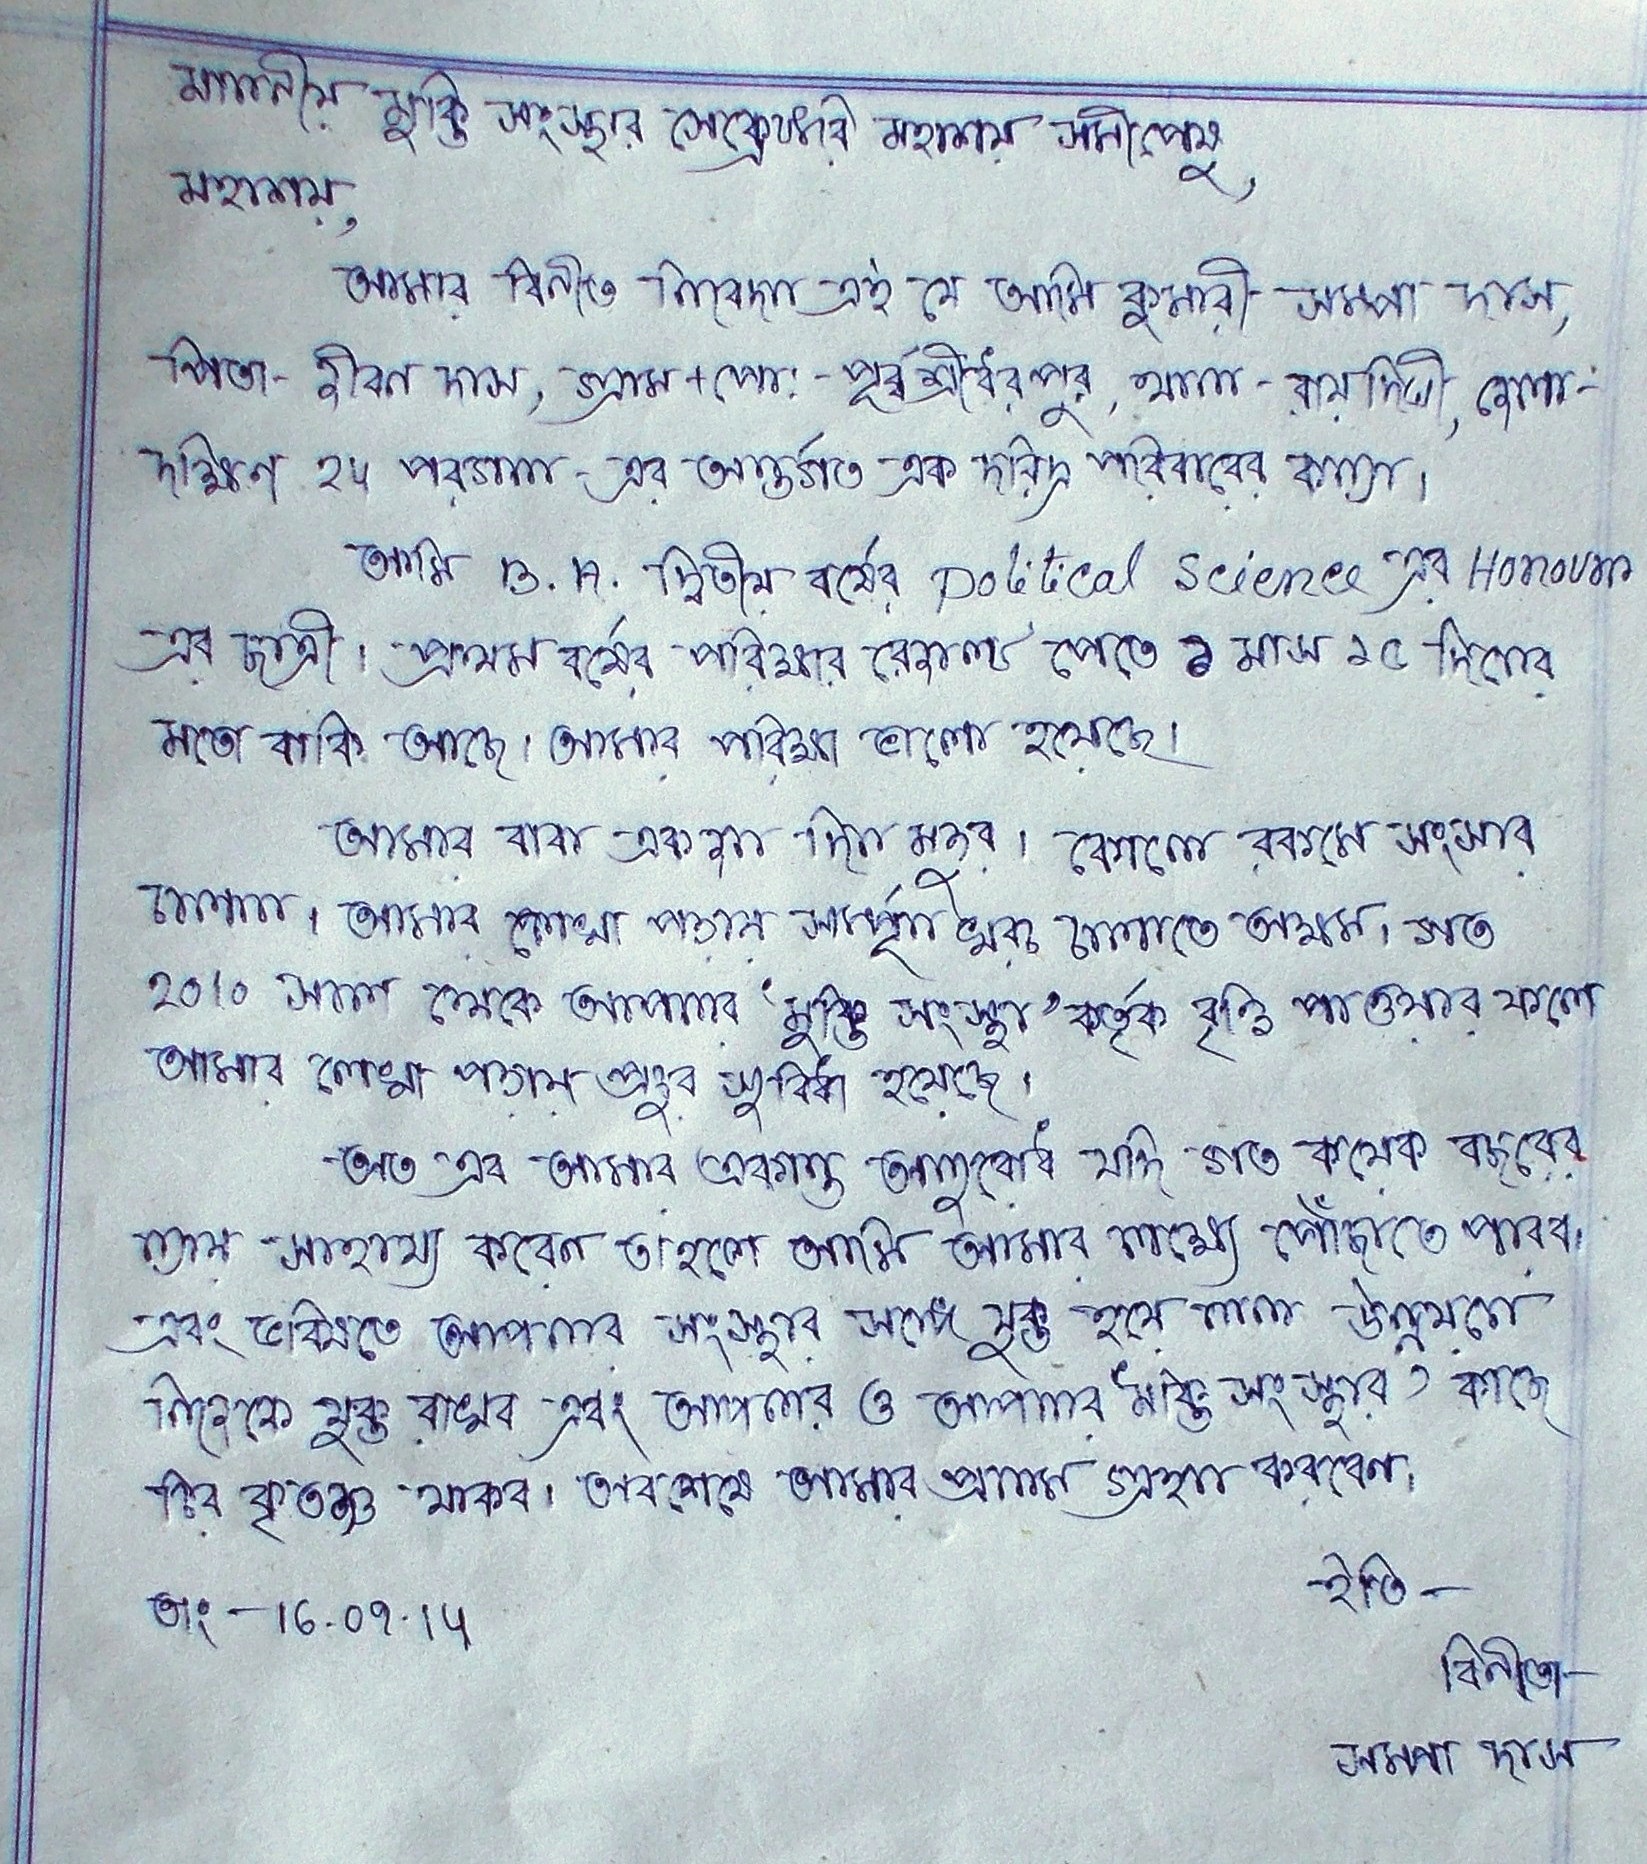 মাননীয় মুক্তি সংস্থার সেক্রেটারী মহাশয় সমীপেষু,
মহাশয়,
আমার বিনীত নিবেদন এই যে আমি কুমারী সম্পা দাস,
পিতা- জীবন দাস, গ্রাম + পো: - পূর্ব শ্রীধরপুর, থানা - রায়দিঘী, জেলা-
দক্ষিণ 24 পরগনা - এর অন্তর্গত এক দরিদ্র পরিবারের কন্যা।
আমি B.A. দ্বিতীয় বর্ষের political Science এর Honours
এর ছাত্রী। প্রথম বর্ষের পরিক্ষার রেজাল্ট পেতে ১ মাস ১৫ দিনের
মতো বাকি আছে। আমার পরিক্ষা ভালো হয়েছে।
আমার বাবা একজন দিন মজুর। কোনো রকমে সংসার
চালান। আমার লেখা পড়ায় সম্পূর্ণ খরচ চালাতে অক্ষম। গত
2010 সাল থেকে আপনার 'মুক্তি সংস্থা' কর্তৃক বৃত্তি পাওয়ার ফলে
আমার লেখা পড়ায় প্রচুর সুবিধা হয়েছে।
অত এব আমার একান্ত অনুরোধ যদি গত কয়েক বছরের
ন্যায় সাহায্য করেন তাহলে আমি আমার লক্ষ্যে পৌঁছাতে পারব।
এবং ভবিষতে আপনার সংস্থার সঙ্গে যুক্ত হয়ে নানা উন্নয়নে
নিজেকে যুক্ত রাখব এবং আপনার ও আপনার 'মুক্তি সংস্থার' কাছে
চির কৃতজ্ঞ থাকব। অবশেষে আমার প্রনাম গ্রহন করবেন।
ইতি -
তাং - 16.09.14
বিনীতা -
সম্পা দাস